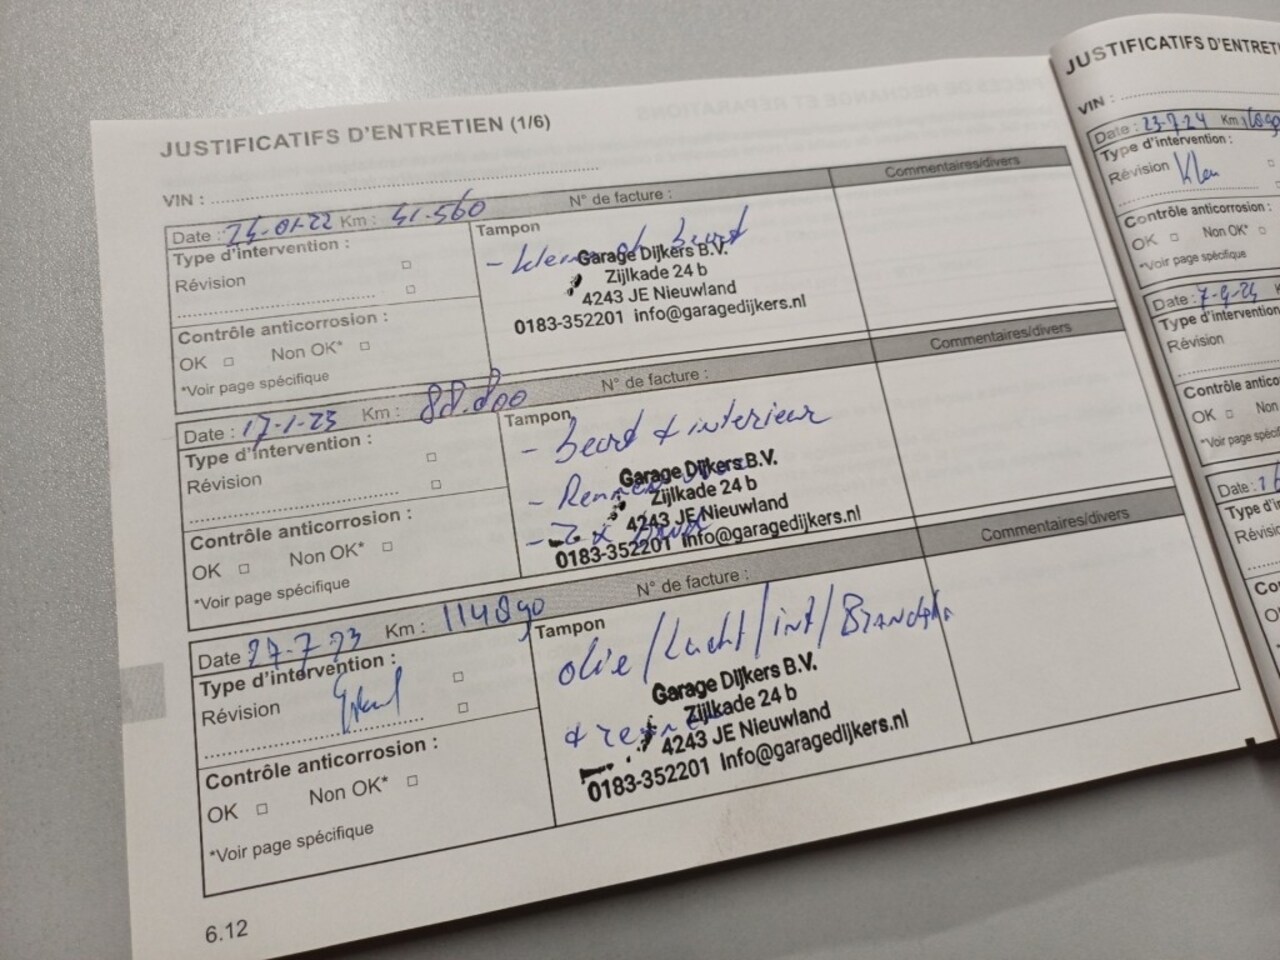 JUSTIFICATIFS D'ENTRETIEN (1/6)
VIN :
Date : 24-01-22 Km : 41.560 N° de facture : Commentaires/divers
Type d'intervention :
Révision
Tampon
- klein beurt
Garage Dijkers B.V.
Zijlkade 24 b
4243 JE Nieuwland
0183-352201 info@garagedijkers.nl
Contrôle anticorrosion :
OK □ Non OK* □
*Voir page spécifique
Date : 17-1-23 Km : 88.800 N° de facture : Commentaires/divers
Type d'intervention :
Révision
Tampon
- beurt + interieur
- Remmen
Garage Dijkers B.V.
Zijlkade 24 b
4243 JE Nieuwland
- 2 x
0183-352201 info@garagedijkers.nl
Contrôle anticorrosion :
OK □ Non OK* □
*Voir page spécifique
Date 27-7-23 Km : 114890 N° de facture : Commentaires/divers
Type d'intervention :
Révision
Tampon
olie/Lucht/int/Brandst.
+
Garage Dijkers B.V.
Zijlkade 24 b
4243 JE Nieuwland
0183-352201 Info@garagedijkers.nl
Contrôle anticorrosion :
OK □ Non OK* □
*Voir page spécifique
6.12
JUSTIFICATIFS D'ENTRETI
VIN :
Date : 23-7-24 Km
Type d'intervention :
Révision Klein
Contrôle anticorrosion :
OK □ Non OK* □
*Voir page spécifique
Date : 7-9-24
Type d'interventi
Révision
Contrôle antico
OK □ Non
*Voir page spécif
Date :
Type d'i
Révisi
Co